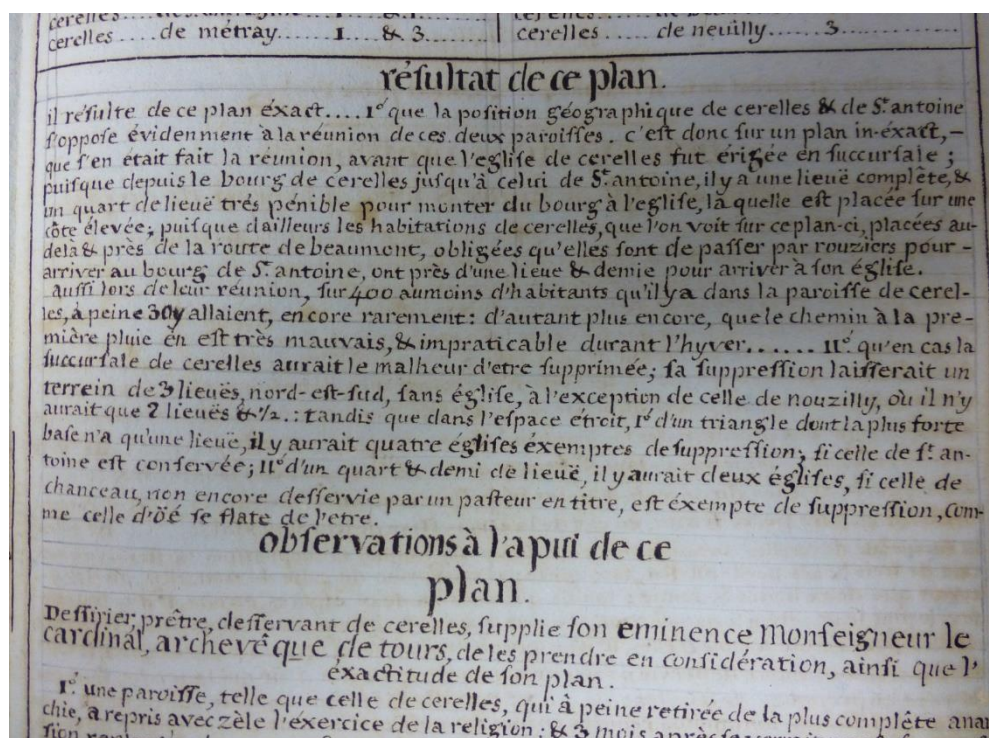 cerelles..... de métray..... 1 & 3......... cerelles ..... de neuilly...... 3
résultat de ce plan.
il résulte de ce plan éxact.... I.º que la position géographique de cerelles & de S.t antoine
s'oppose évidenment à la réunion de ces deux paroisses. c'est donc sur un plan in-éxact, –
que s'en était fait la réunion, avant que l'eglise de cerelles fut érigée en succursale ;
puisque depuis le bourg de cerelles jusqu'à celui de S.t antoine, il y a une lieuë complête, &
un quart de lieuë trés pénible pour monter du bourg à l'eglise, la quelle est placée sur une
côte élevée; puisque d'ailleurs les habitations de cerelles, que l'on voit sur ce plan-ci, placées au-
delà & près de la route de beaumont, obligées qu'elles sont de passer par rouziers pour –
arriver au bourg de S.t antoine, ont près d'une lieue & demie pour arriver à son église.
Aussi lors de leur réunion, sur 400 aumoins d'habitants qu'il y a dans la paroisse de cerel-
les, à peine 30 y allaient, encore rarement : d'autant plus encore, que le chemin à la pre-
mière pluie en est très mauvais, & impraticable durant l'hyver....... II.º qu'en cas la
succursale de cerelles aurait le malheur d'etre supprimée; sa suppression laisserait un
terrein de 3 lieuës, nord-est-sud, sans église, à l'exception de celle de nouzilly, où il n'y
aurait que 2 lieuës & ½. : tandis que dans l'espace étroit, I.º d'un triangle dont la plus forte
base n'a qu'une lieuë, il y aurait quatre églises éxemptes de suppression, si celle de s.t an-
toine est conservée; II.º d'un quart & demi de lieuë, il y aurait deux églises, si celle de
chanceau, non encore desservie par un pasteur en titre, est éxempte de suppression, com-
me celle d'öé se flate de l'etre.
observations à l'apui de ce
plan.
Dessirier, prêtre, desservant de cerelles, supplie son eminence Monseigneur le
cardinal, archevêque de tours, de les prendre en considération, ainsi que l'
éxactitude de son plan.
I.º une paroisse, telle que celle de cerelles, qui à peine retirée de la plus complête anar
chie, a repris avec zèle l'éxercice de la religion ; & 3 mois après